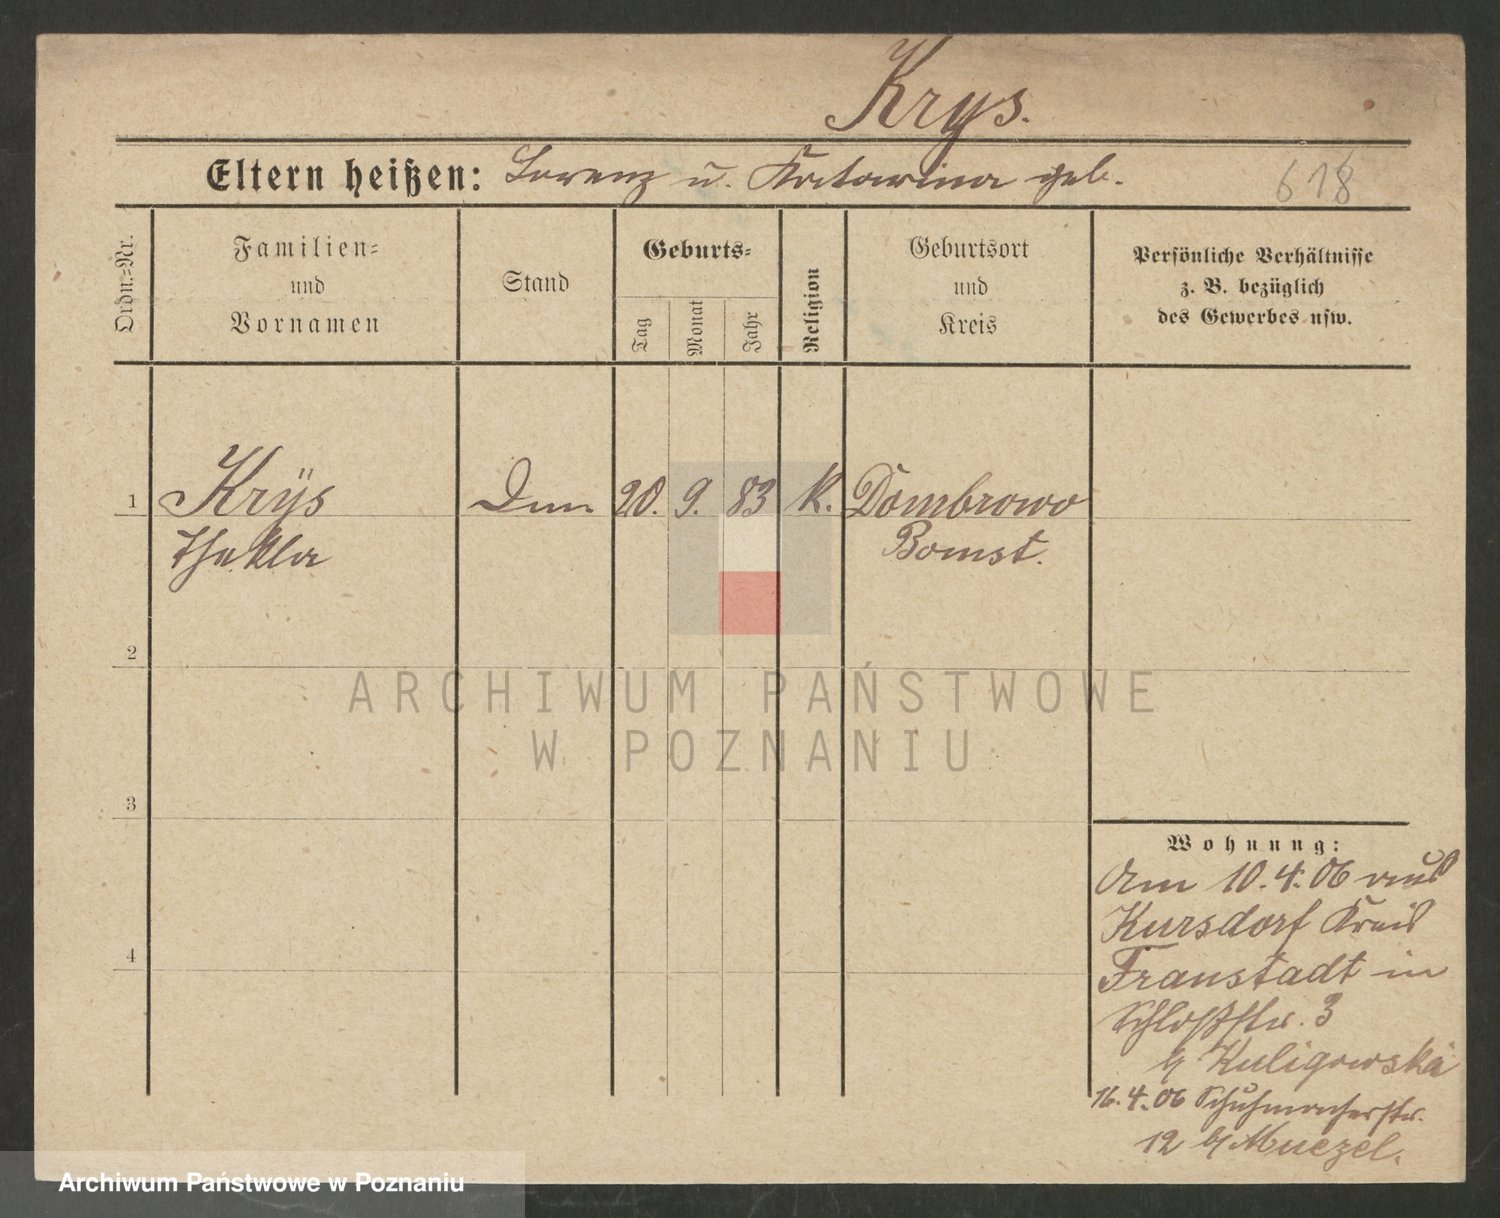 Krys.
Eltern heißen: Lorenz u. Katarina geb.
618
Ordn.=Nr.
Familien=
und
Vornamen
Stand
Geburts=
Tag
Monat
Jahr
Religion
Geburtsort
und
Kreis
Persönliche Verhältnisse
z. B. bezüglich
des Gewerbes usw.
1 Krÿs 20. 9. 83 K. Dombrowo
Thekla Bomst.
2
3
4
Wohnung:
Am 10.4.06 aus
Kursdorf Kreis
Fraustadt in
Schloßstr. 3
b/ Kuligowska
16.4.06 Schuhmacherstr.
12 b/ Muezel.
ARCHIWUM PAŃSTWOWE
W POZNANIU
Archiwum Państwowe w Poznaniu